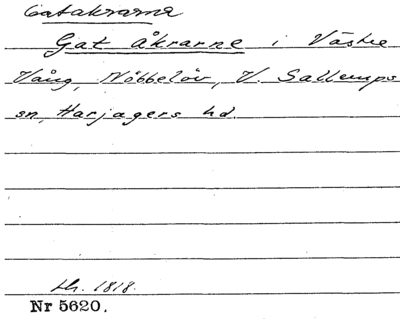 Gatakrarna
Gat åkrarne i Västre
Vång, Nöbbelöv, V. Sallerups
sn, Harjagers hd.
Lh. 1818.
Nr 5620.